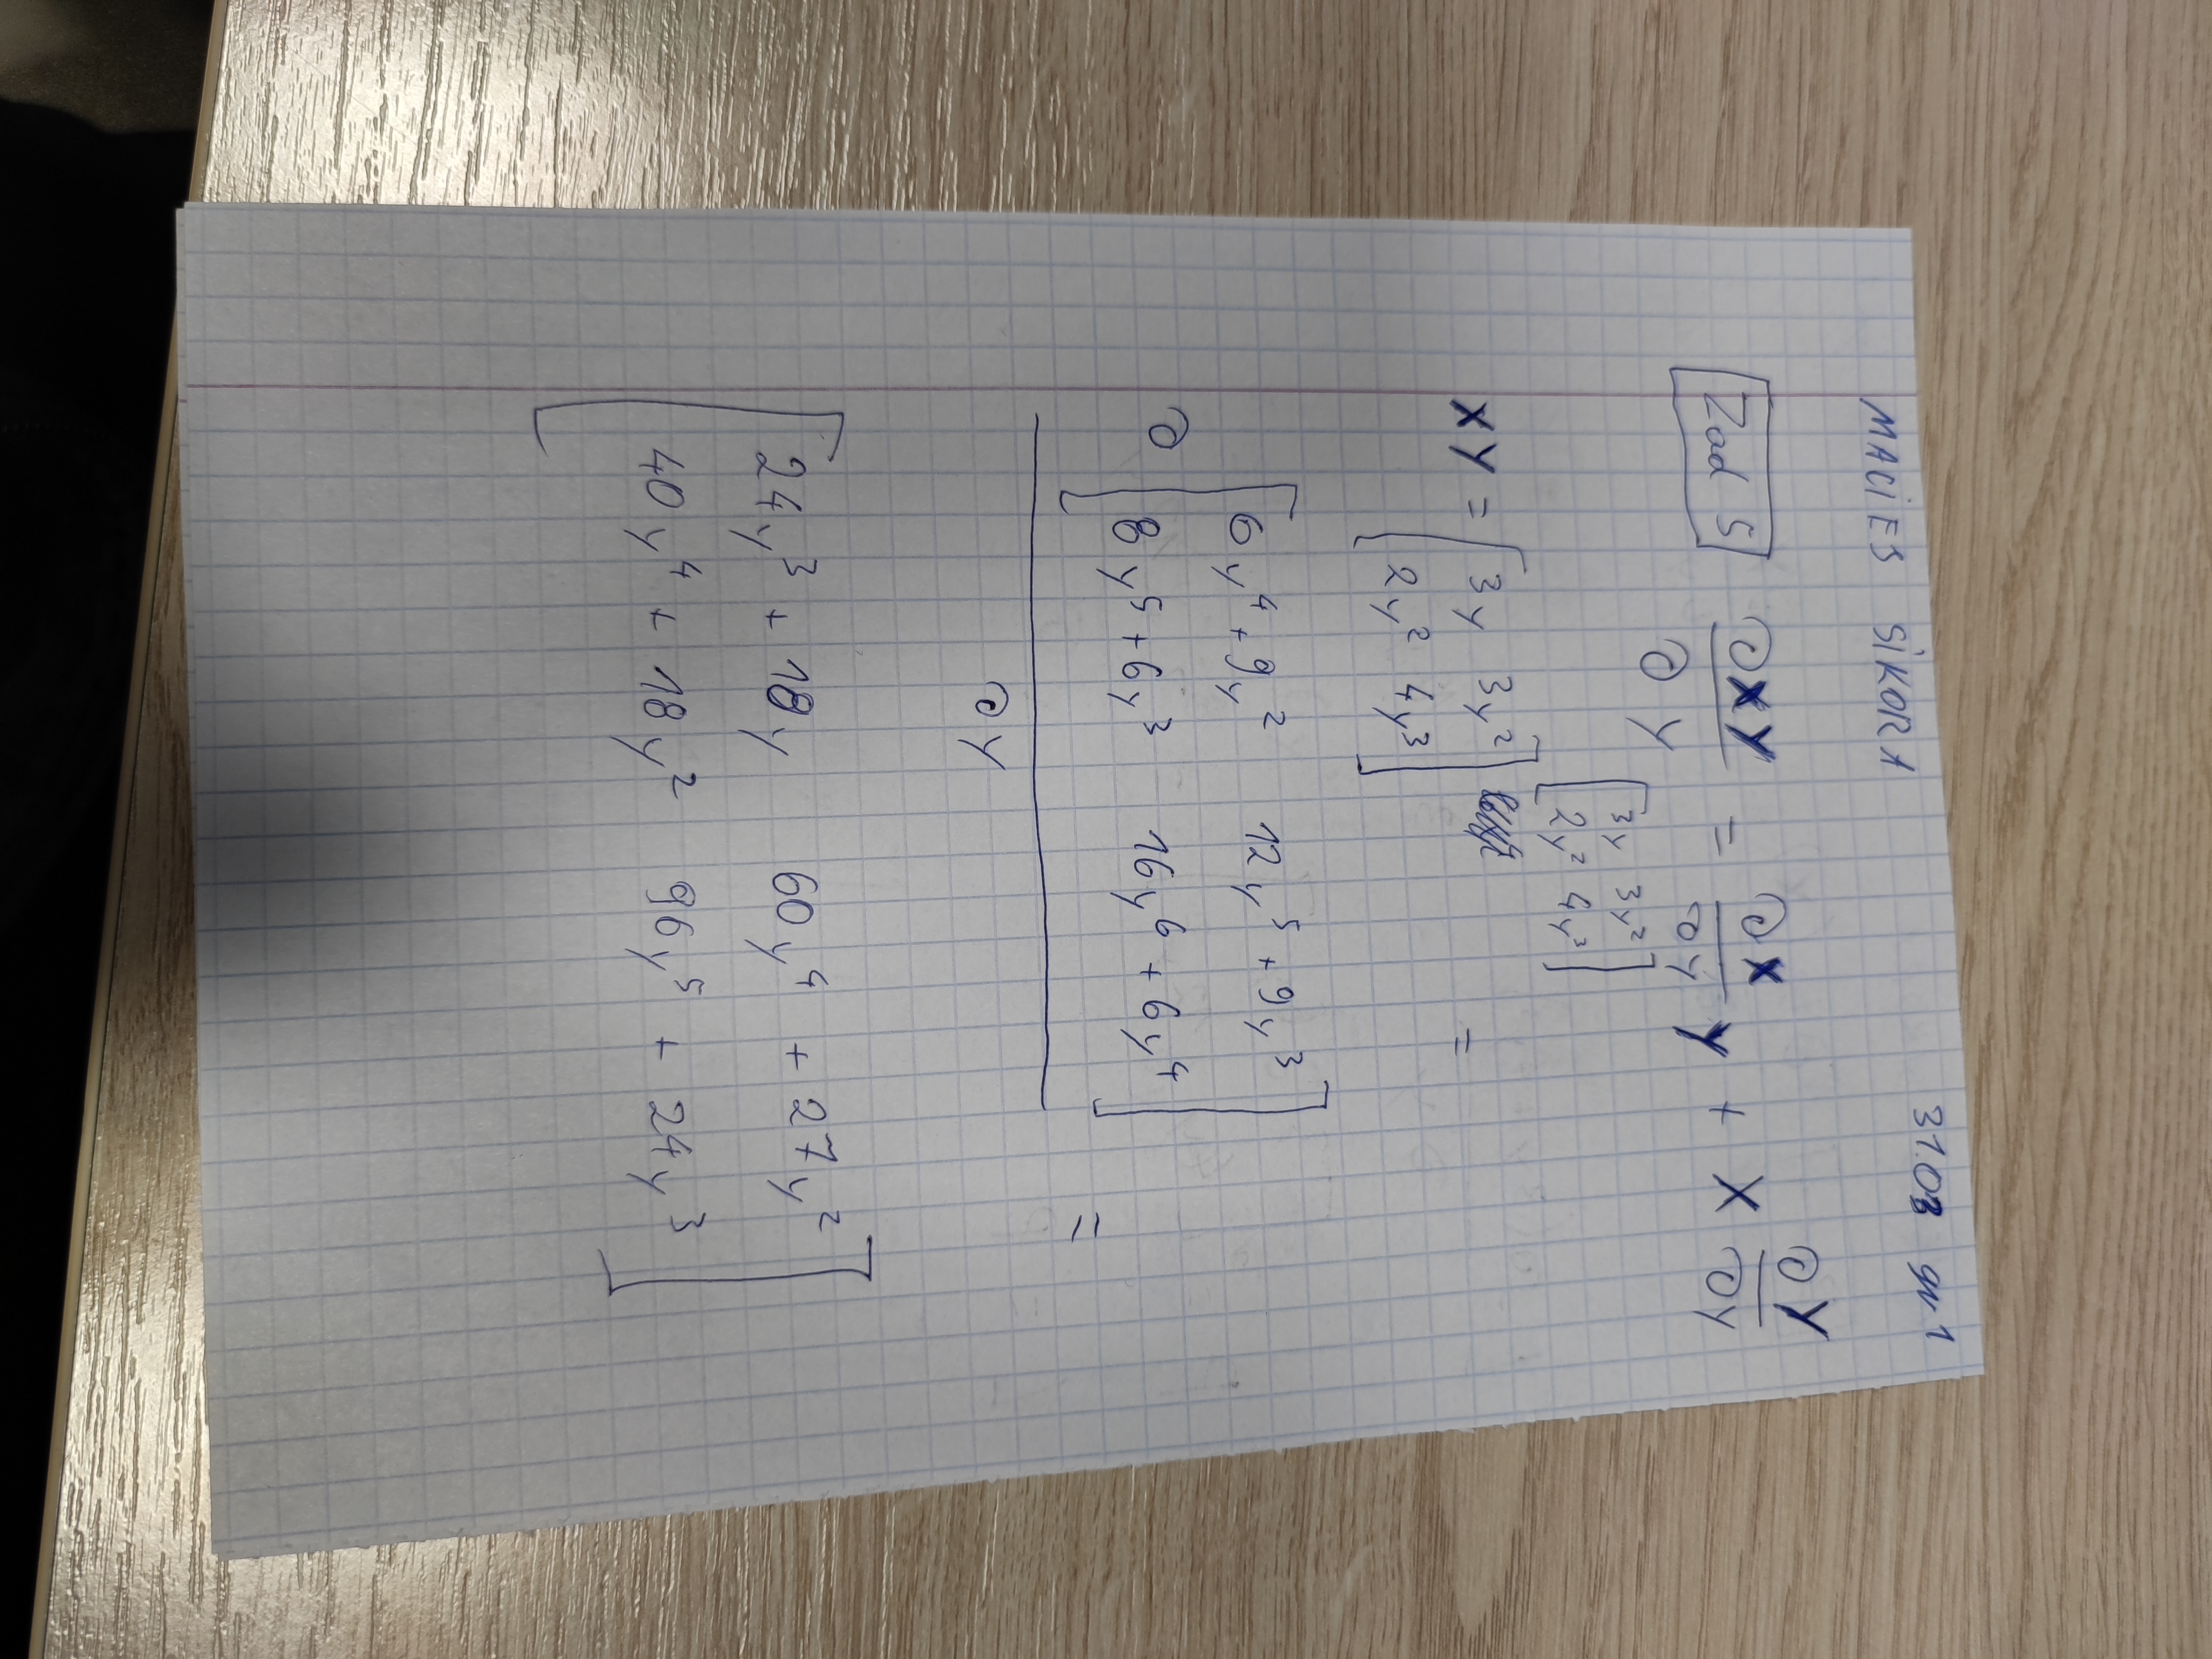 MACIEJ SIKORA 31.03 gr 1
Zad 5 ∂XY / ∂y = ∂X / ∂y Y + X ∂Y / ∂y
[ 3y 3y² ]
[ 2y² 4y³ ]
XY = [ 3y 3y² ] =
[ 2y² 4y³ ]
∂ [ 6y⁴ + 9y² 12y⁵ + 9y³ ]
[ 8y⁵ + 6y³ 16y⁶ + 6y⁴ ] =
∂y
[ 24y³ + 18y 60y⁴ + 27y² ]
[ 40y⁴ + 18y² 96y⁵ + 24y³ ]